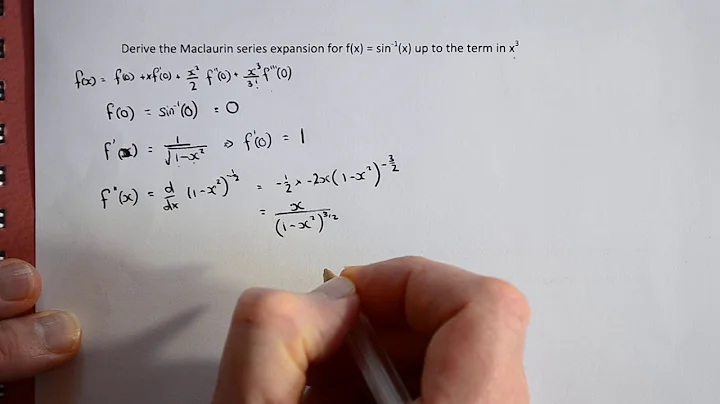 Derive the Maclaurin series expansion for f(x) = sin⁻¹(x) up to the term in x³
f(x) = f(0) + xf'(0) + x²/2 f''(0) + x³/3! f'''(0)
f(0) = sin⁻¹(0) = 0
f'(x) = 1/√(1-x²) ⇒ f'(0) = 1
f''(x) = d/dx (1-x²)^(-1/2) = -1/2 × -2x(1-x²)^(-3/2)
= x/(1-x²)^(3/2)